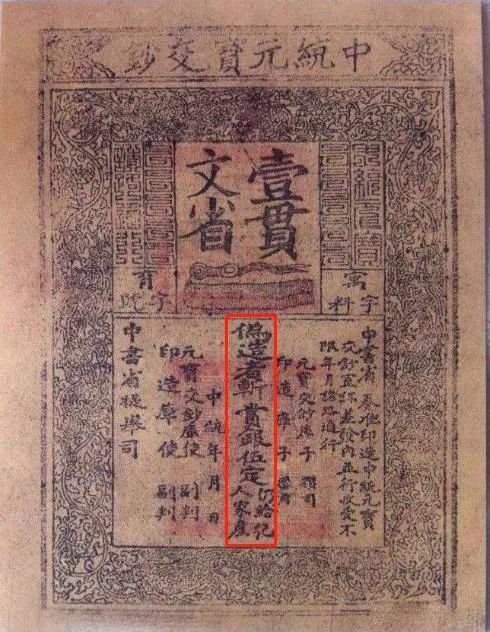 中統元寶交鈔
壹貫
文省
字料
字號
中書省奏准印造中統元寶
交鈔宣課差發內並行收受不
限年月諸路通行
元寶交鈔庫子 攢司
印造庫子 攢司
偽造者斬賞銀伍定仍給犯人家産
中統 年 月 日
元寶交鈔庫使副判
印造庫使副判
中書省提舉司